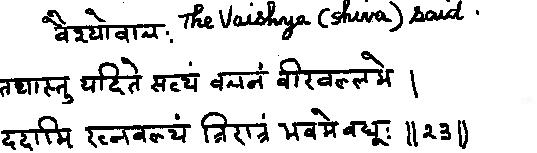 वैश्योवाच: The Vaishya (shiva) said.
तथास्तु यदिते सत्यं वचनं वीरवल्लभे |
ददामि रत्नवलयं त्रिरात्रं भवमेवधूः ||२३||